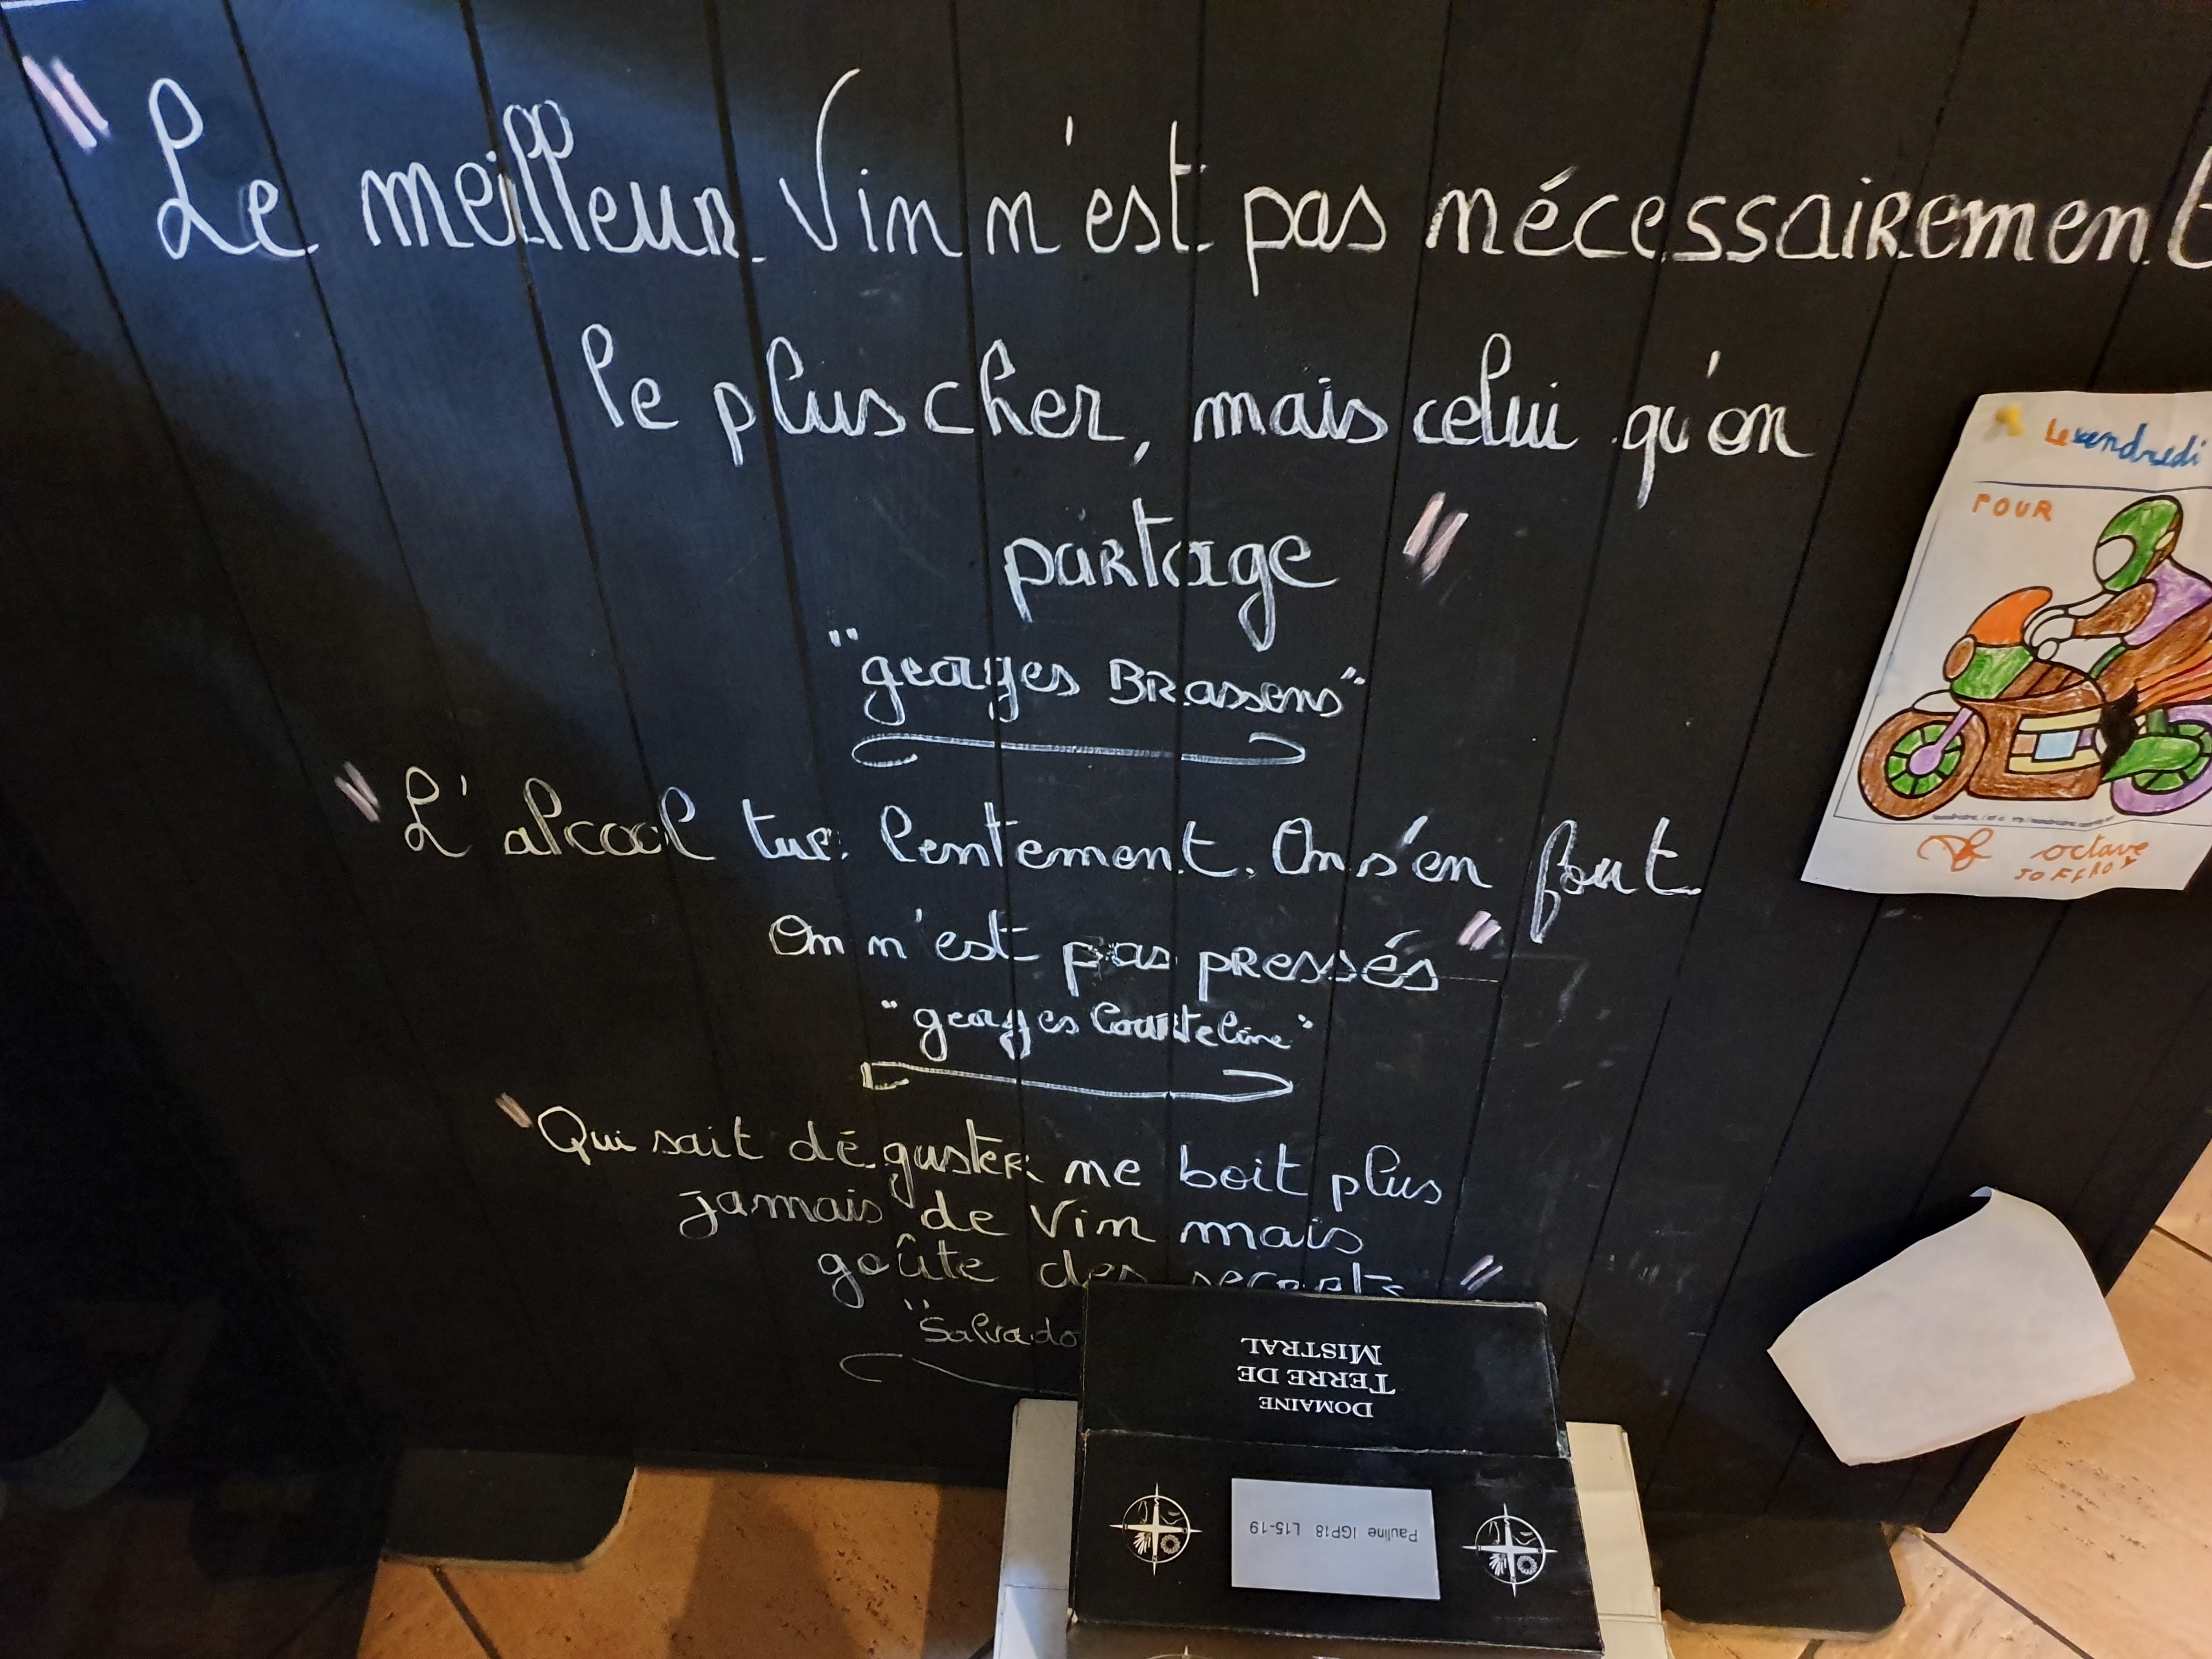 " Le meilleur Vin n'est pas nécessairement
le plus cher, mais celui qu'on
partage "
"georges BRassens"
" L'alcool tue lentement. On s'en fout
On n'est pas pRessés "
"georges Courteline"
" Qui sait déguster ne boit plus
jamais de Vin mais
goûte des secrets "
"Salvado
Le vendredi
POUR
octave
JOFFROY
DOMAINE
TERRE DE
MISTRAL
Pauline IGP18 L15-19